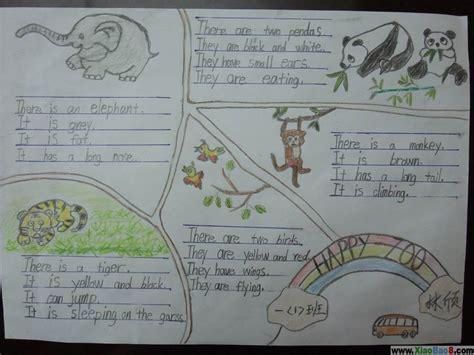 There are two pendas.
They are black and white.
They have small ears.
They are eating.
There is an elephant.
It is grey.
It is fat.
It has a long nose.
There is a monkey.
It is brown.
It has a long tail.
It is climbing.
There are two birds.
They are yellow and red.
They have wings.
They are flying.
There is a tiger.
It is yellow and black.
It can jump.
It is sleeping on the garss.
HAPPY ZOO
一(1)班
www.XiaoBao8.com